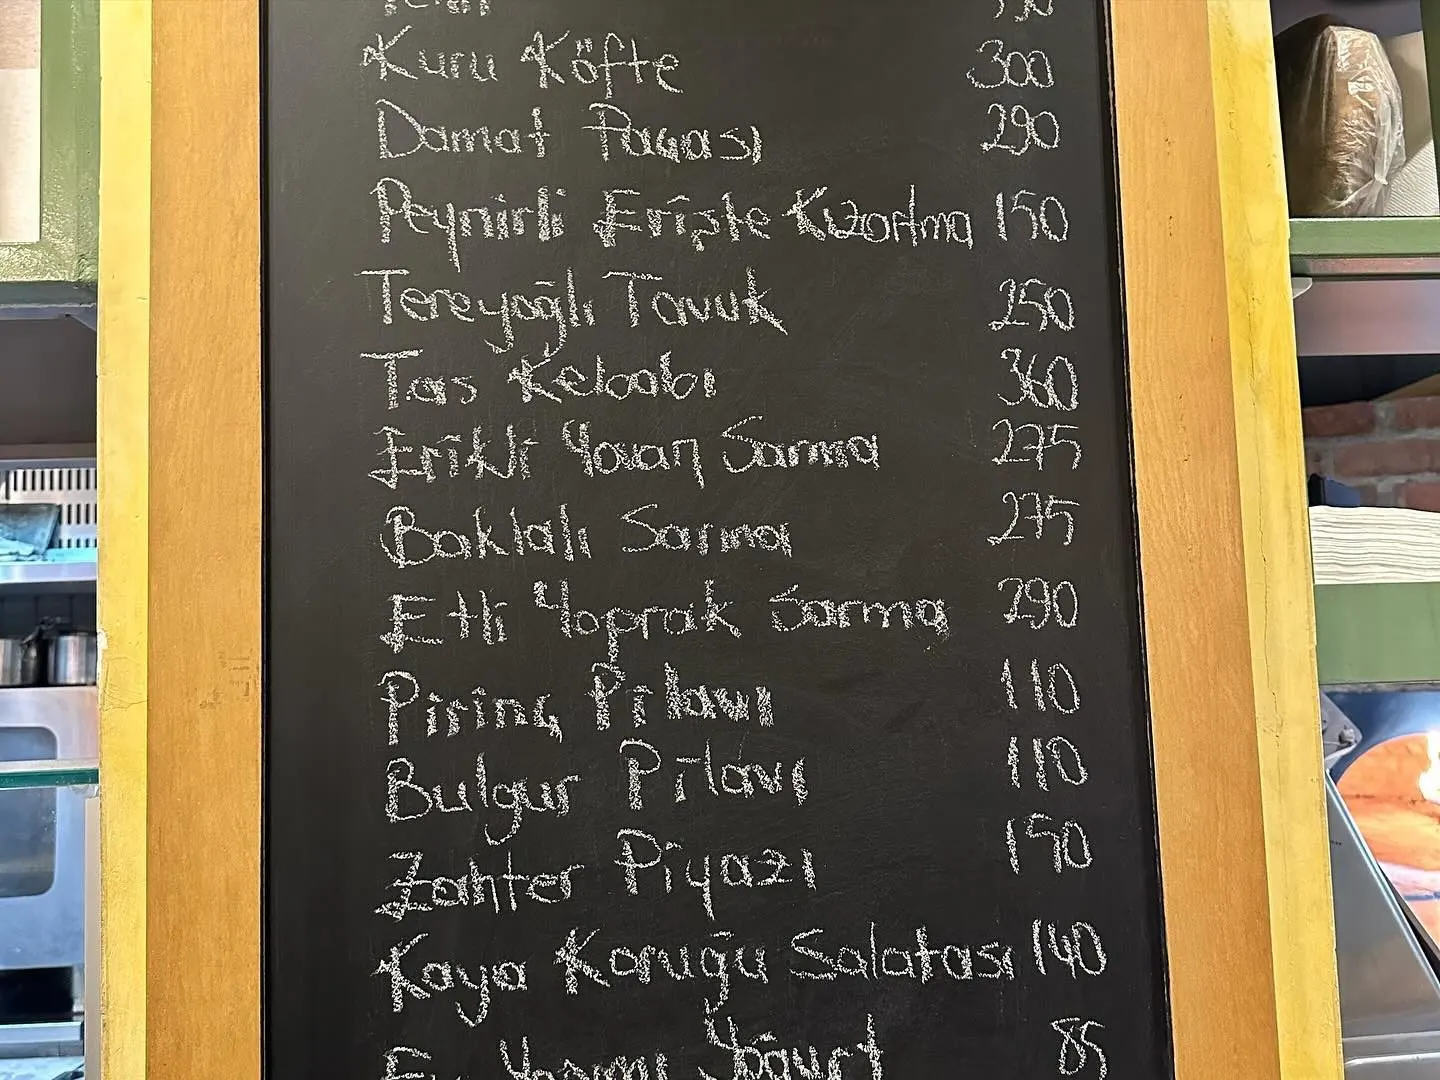 Kuru Köfte 300
Damat Paçası 290
Peynirli Erişte Kızartma 150
Tereyağlı Tavuk 250
Tas Kebabı 360
Erikli Yavan Sarma 275
Baklalı Sarma 275
Etli Yaprak Sarma 290
Pirinç Pilavı 110
Bulgur Pilavı 110
Zahter Piyazı 150
Kaya Koruğu Salatası 140
Ev Yapımı Yoğurt 85